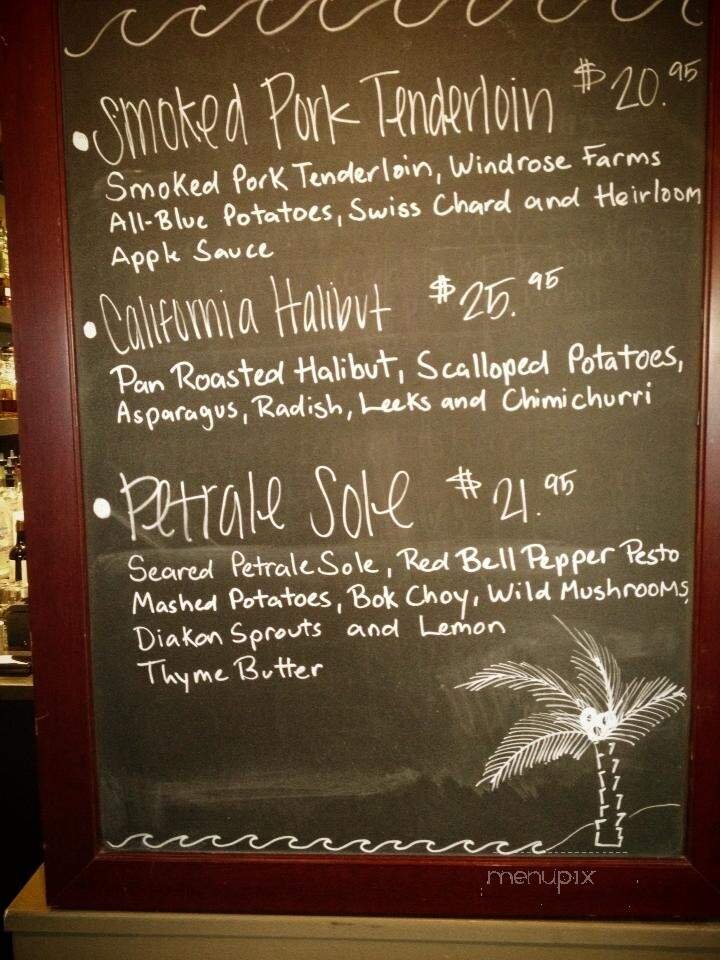 • Smoked Pork Tenderloin $20.95
Smoked Pork Tenderloin, Windrose Farms
All-Blue Potatoes, Swiss Chard and Heirloom
Apple Sauce
• California Halibut $25.95
Pan Roasted Halibut, Scalloped Potatoes,
Asparagus, Radish, Leeks and Chimichurri
• Petrale Sole $21.95
Seared Petrale Sole, Red Bell Pepper Pesto
Mashed Potatoes, Bok Choy, Wild Mushrooms,
Diakon Sprouts and Lemon
Thyme Butter
menupix